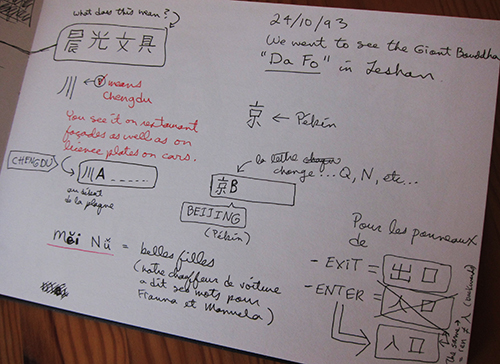 what does this mean?
晨光文具
24/10/93
We went to see the Giant Bouddha
"Da Fo" in Leshan.
川 ← means
Chengdu
You see it on restaurant
façades as well as on
licence plates on cars.
京 ← Pékin
CHENGDU
川A
au début
de la plaque
la lettre
change... Q, N, etc...
京B
BEIJING
(Pékin)
Měi Nǚ = belles filles
(notre chauffeur de voiture
a dit ses mots pour
et Manuela)
Pour les panneaux
de
- EXIT = 出口
- ENTER = 入口
入口
The same